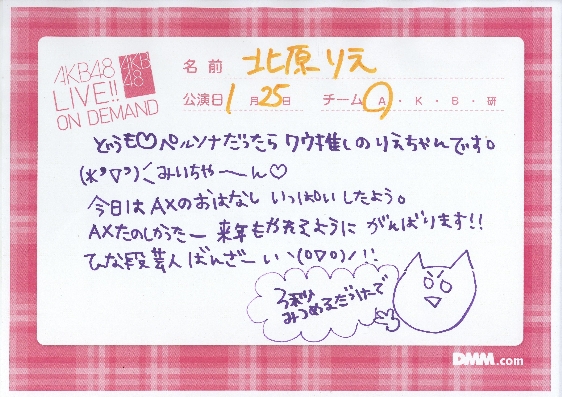 AKB48
LIVE!!
ON DEMAND
AKB
48
名前 北原りえ
公演日 1月25日 チーム A・K・B・研
どうも♡ペルソナだったらクウ推しのりえちゃんです。
(*°▽°)くみいちゃーーん♡
今日はAXのおはなし いっぱいしたよう。
AXたのしかったー 来年もでれるように がんばります!!
ひな段芸人ばんざーい ヽ(0▽0)ノ!!
3秒
みつめるだけで
DMM.com